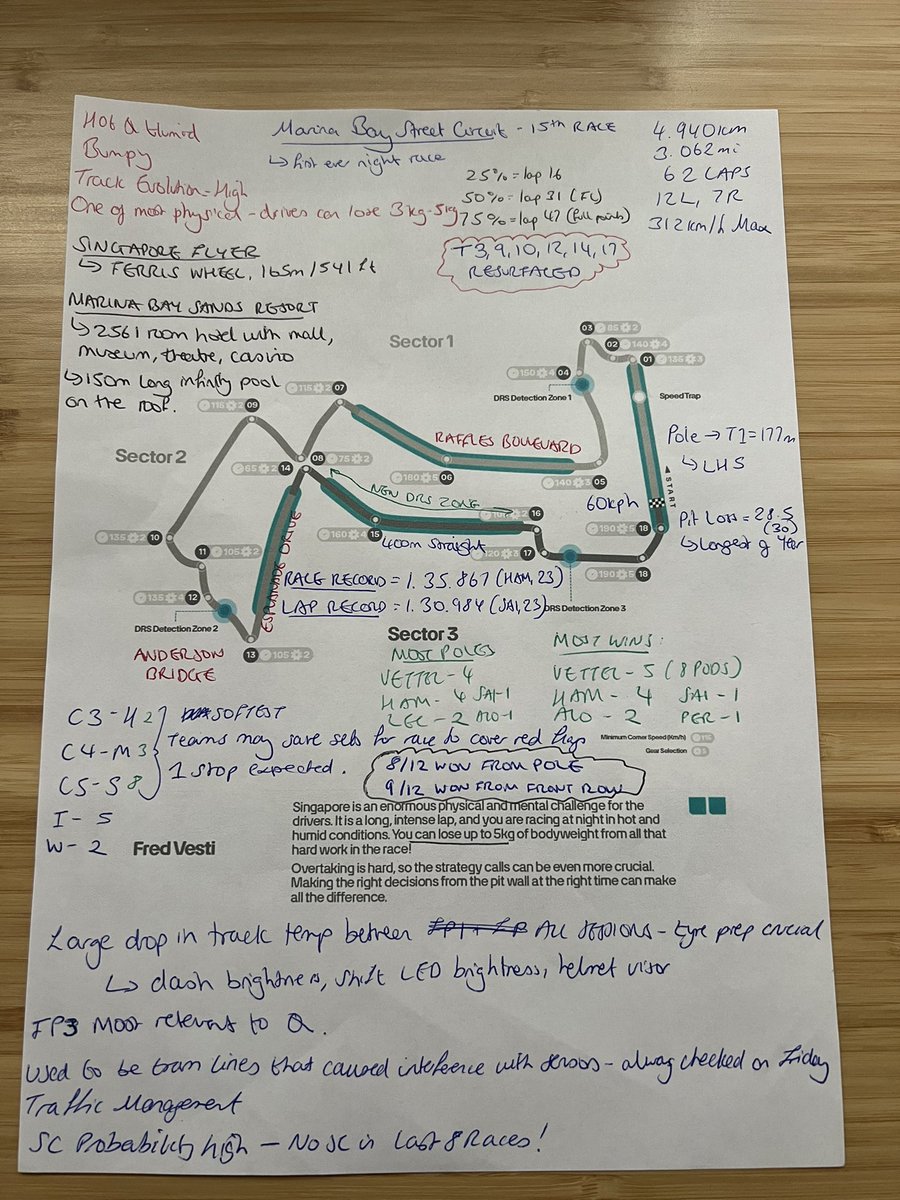 Hot & Humid
Bumpy
Track Evolution = High
One of most physical - drives can lose 3kg-5kg
Marina Bay Street Circuit - 15th RACE
↳ first ever night race
25% = lap 16
50% = lap 31 (FL)
75% = lap 47 (full points)
4.940km
3.062mi
62 LAPS
12L, 7R
312km/h Max
T3, 9, 10, 12, 14, 17
RESURFACED
SINGAPORE FLYER
↳ FERRIS WHEEL, 165m/541ft
MARINA BAY SANDS RESORT
↳ 2561 room hotel with mall,
museum, theatre, casino
↳ 150m long infinity pool
on the roof.
Sector 1
03 85 2
02 140 4
01 135 3
150 4 04
DRS Detection Zone 1
Speed Trap
115 2 07
115 2 09
RAFFLES BOULEVARD
Pole → T1 = 177m
↳ LHS
Sector 2
65 2 14
08 75 2
180 5 06
140 3 05
START
NEW DRS ZONE
60kph
2 16
190 5 18
Pit Loss = 28.5
(30)
↳ Longest of Year
135 2 10
11 105 2
160 4 15
400m straight
120 3 17
190 5 18
135 4 12
ESPLANADE DRIVE
RACE RECORD = 1.35.867 (HAM, 23)
LAP RECORD = 1.30.984 (SAI, 23)
DRS Detection Zone 3
DRS Detection Zone 2
13 105 2
ANDERSON
BRIDGE
Sector 3
MOST POLES
VETTEL - 4
HAM - 4 SAI-1
LEC - 2 ALO-1
MOST WINS:
VETTEL - 5 (8 PODS)
HAM - 4 SAI - 1
ALO - 2 PER - 1
Minimum Corner Speed (Km/h) 115
Gear Selection 5
C3 - H 2 SOFTEST
C4 - M 3 Teams may save sets for race to cover red flag
C5 - S 8 1 stop expected.
I - 5
W - 2
8/12 WON FROM POLE
9/12 WON FROM FRONT ROW
Fred Vesti
Singapore is an enormous physical and mental challenge for the
drivers. It is a long, intense lap, and you are racing at night in hot and
humid conditions. You can lose up to 5kg of bodyweight from all that
hard work in the race!
Overtaking is hard, so the strategy calls can be even more crucial.
Making the right decisions from the pit wall at the right time can make
all the difference.
Large drop in track temp between ALL SESSIONS - tyre prep crucial
↳ dash brightness, shift LED brightness, helmet visor
FP3 Most relevant to Q.
Used to be tram lines that caused inteference with sensors - alway checked on Friday
Traffic Management
SC Probability high - No SC in Last 8 Races!